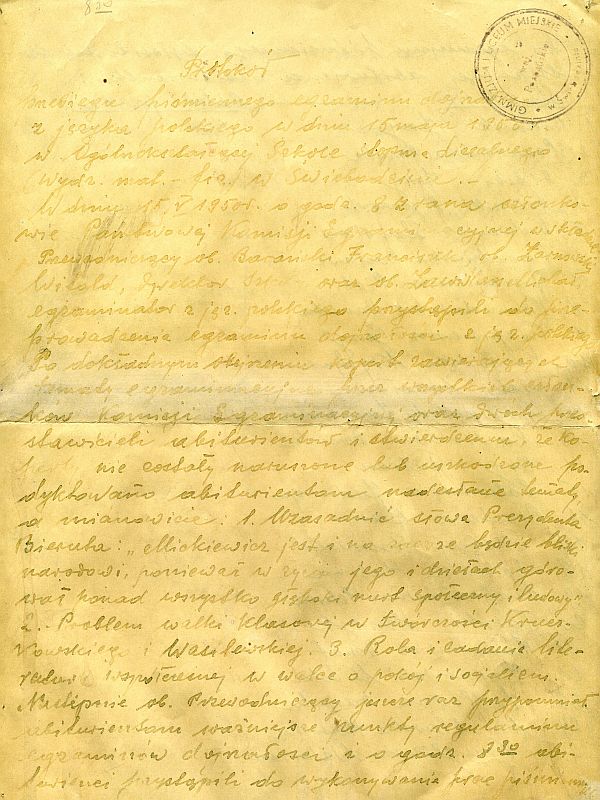 8 30
GIMNAZJUM I LICEUM MIEJSKIE
Protokół
pisemnego egzaminu dojrza
z języka polskiego w dniu 15 maja 1950
w Ogólnokształcącej Szkole stopnia licealnego
(Wydz. mat. - fiz.) w Świebodzinie. -
W dniu 15. V 1950r. o godz. 8 z rana członko-
wie Państwowej Komisji Egzaminacyjnej w składzie
Przewodniczący ob. Barański Franciszek, ob.
Witold, Dyrektor oraz ob.
egzaminator z jęz. polskiego przystąpili do prze-
prowadzenia egzaminu dojrzałości z jęz. polskiego
Po dokładnym kopert zawierających
tematy egzaminacyjne przez wszystkich człon-
ków Komisji Egzaminacyjnej oraz dwóch przed
stawicieli abiturientów i stwierdzeniu, że ko-
perty nie zostały naruszone lub uszkodzone po-
dyktowano abiturientom nadesłane tematy
a mianowicie: 1. Uzasadnić słowa Prezydenta
Bieruta: „Mickiewicz jest i na zawsze będzie bliski
narodowi, ponieważ w życiu jego i dziełach góro-
wał ponad wszystko głęboki nurt społeczny i ludowy"
2. - Problem walki klasowej w twórczości Krucz-
kowskiego i Wasilewskiej. 3. Rola i zadania lite-
ratury współczesnej w walce o pokój i socjalizm.
Następnie ob. Przewodniczący jeszcze raz przypomniał
abiturientom ważniejsze punkty regulaminu
egzaminów dojrzałości i o godz. 8 30 abi-
turienci przystąpili do wykonywania prac pisemnych